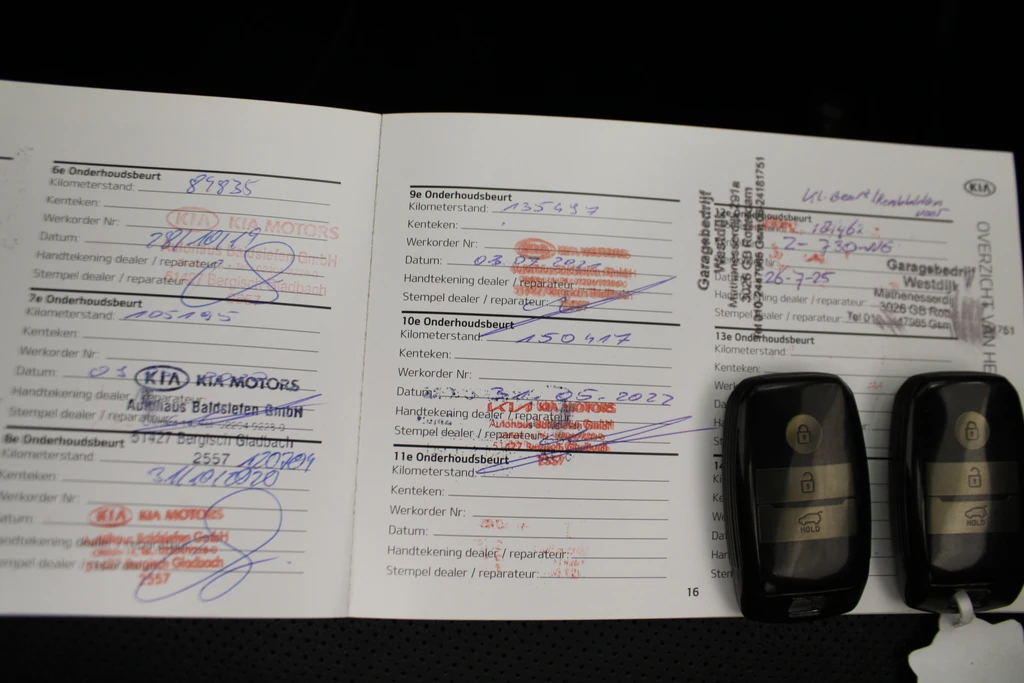 6e Onderhoudsbeurt
Kilometerstand: 89835
Kenteken:
Werkorder Nr:
KIA KIA MOTORS
Datum: 28/10/19
Autohaus Baldsiefen GmbH
Handtekening dealer / reparateur:
51427 Bergisch Gladbach
Stempel dealer / reparateur:
2557
7e Onderhoudsbeurt
Kilometerstand: 105195
Kenteken:
Werkorder Nr:
Datum: 03
KIA KIA MOTORS
Handtekening dealer / reparateur:
Autohaus Baldsiefen GmbH
Stempel dealer / reparateur:
51427 Bergisch Gladbach
2557
8e Onderhoudsbeurt
Kilometerstand 120794
Kenteken: 31/10/2020
Werkorder Nr:
KIA KIA MOTORS
Datum:
Autohaus Baldsiefen GmbH
Handtekening dealer / reparateur:
51427 Bergisch Gladbach
Stempel dealer / reparateur:
2557
9e Onderhoudsbeurt
Kilometerstand: 135497
Kenteken:
Werkorder Nr:
Datum: 2021
Handtekening dealer / reparateur:
Stempel dealer / reparateur:
10e Onderhoudsbeurt
Kilometerstand: 150417
Kenteken:
Werkorder Nr:
Datum: 31.05.2022
KIA KIA MOTORS
Handtekening dealer / reparateur:
Autohaus Baldsiefen GmbH
Stempel dealer / reparateur:
51427 Bergisch Gladbach
2557
11e Onderhoudsbeurt
Kilometerstand:
Kenteken:
Werkorder Nr:
Datum:
Handtekening dealer / reparateur:
Stempel dealer / reparateur:
16
KIA
OVERZICHT VAN HE
Kl Beurt/Remblokken
voor
12e Onderhoudsbeurt
Z-730-NG
26-7-25
Garagebedrijf
Westdijk
3026 GB Rotterdam
Garagebedrijf
Westdijk
Mathenesserdij
3026 GB Rott
dealer / reparateur:
Stempel dealer / reparateur:
13e Onderhoudsbeurt
Kilometerstand:
Kenteken:
Werk
Datum
Hand
Stem
14
Kil
Ken
We
Dat
Han
Ster
HOLD
HOLD